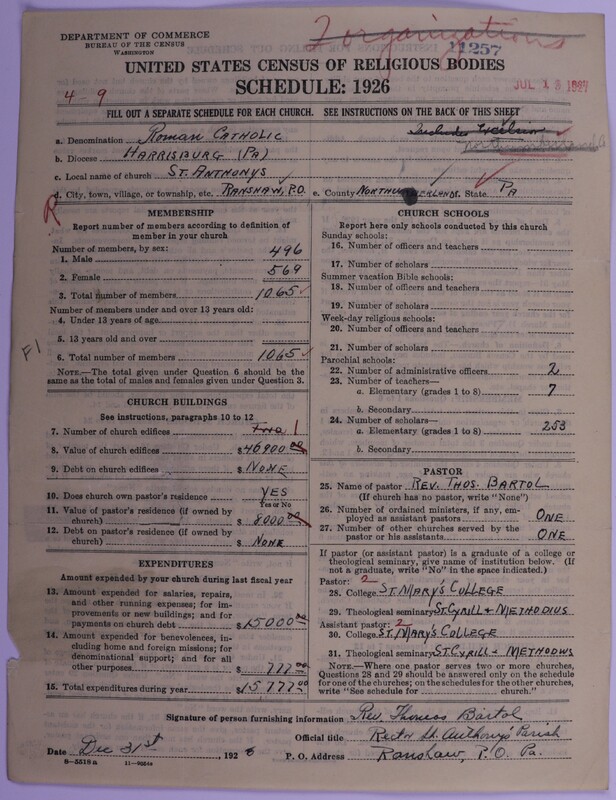 DEPARTMENT OF COMMERCE
BUREAU OF THE CENSUS
WASHINGTON
2 organizations
11257
UNITED STATES CENSUS OF RELIGIOUS BODIES
SCHEDULE: 1926
JUL 1
4-9
FILL OUT A SEPARATE SCHEDULE FOR EACH CHURCH. SEE INSTRUCTIONS ON THE BACK OF THIS SHEET
a. Denomination ROMAN CATHOLIC
b. Diocese HARRISBURG (PA)
c. Local name of church ST. ANTHONYS
d. City, town, village, or township, etc. RANSHAW, P.O. e. County NORTHUMBERLAND. State PA
R
MEMBERSHIP
Report number of members according to definition of member in your church
Number of members, by sex:
1. Male 496
2. Female 569
3. Total number of members 1065
Number of members under and over 13 years old:
4. Under 13 years of age
5. 13 years old and over
6. Total number of members 1065
F1
NOTE.—The total given under Question 6 should be
same as the total of males and females given under Question 3.
CHURCH BUILDINGS
See instructions, paragraphs 10 to 12
7. Number of church edifices Two 1
8. Value of church edifices $46900 00
9. Debt on church edifices $ NONE
10. Does church own pastor's residence YES
Yes or No
11. Value of pastor's residence (if owned by
church) $ 8000 00
12. Debt on pastor's residence (if owned by
church) $ NONE
EXPENDITURES
Amount expended by your church during last fiscal year
13. Amount expended for salaries, repairs,
and other running expenses; for im-
provements or new buildings; and for
payments on church debt $15000 00
14. Amount expended for benevolences,
including home and foreign missions; for
denominational support; and for all
other purposes $ 777 00
15. Total expenditures during year $15777 00
CHURCH SCHOOLS
Report here only schools conducted by this church
Sunday schools:
16. Number of officers and teachers
17. Number of scholars
Summer vacation Bible schools:
18. Number of officers and teachers
19. Number of scholars
Week-day religious schools:
20. Number of officers and teachers
21. Number of scholars
Parochial schools:
22. Number of administrative officers 2
23. Number of teachers—
a. Elementary (grades 1 to 8) 7
b. Secondary
24. Number of scholars—
a. Elementary (grades 1 to 8) 253
b. Secondary
PASTOR
25. Name of pastor REV. THOS. BARTOL
(If church has no pastor, write "None")
26. Number of ordained ministers, if any, em-
ployed as assistant pastors ONE
27. Number of other churches served by the
pastor or his assistants ONE
If pastor (or assistant pastor) is a graduate of a college or
theological seminary, give name of institution below. (If
not a graduate, write "No" in the space indicated.)
Pastor: 2
28. College ST. MARY'S COLLEGE
29. Theological seminary ST. CYRILL & METHODIUS
Assistant pastor: 2
30. College ST. MARY'S COLLEGE
31. Theological seminary ST. CYRILL & METHODIUS
NOTE.—Where one pastor serves two or more churches,
Questions 28 and 29 should be answered only on the schedule
for one of the churches; on the schedules for the other churches,
write "See schedule for church."
Signature of person furnishing information Rev. Thomas Bartol
Official title Rector St. Anthonys' Parish
Date Dec 31st, 1926 P. O. Address Ranshaw, P.O. Pa.
8-5518a 11-9554a